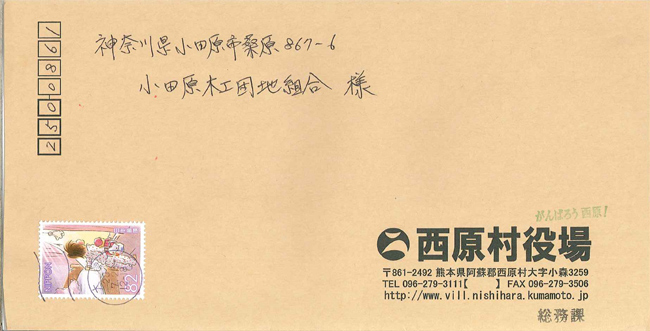 2500861
神奈川県小田原市桑原867-6
小田原木工団地組合 様
がんばろう西原!
西原村役場
〒861-2492 熊本県阿蘇郡西原村大字小森3259
TEL 096-279-3111【 】 FAX 096-279-3506
http://www.vill.nishihara.kumamoto.jp
総務課
62